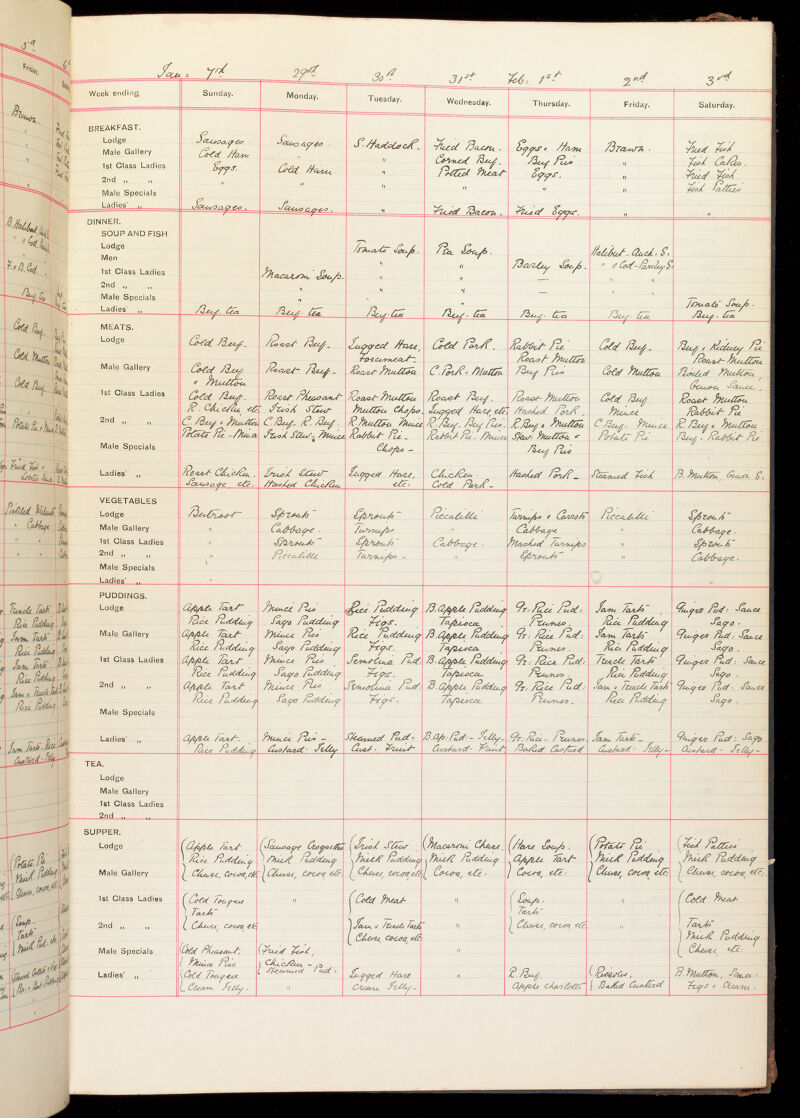 Jan: 7th 29th 30th 31st Feb: 1st 2nd 3rd
Week ending Sunday. Monday. Tuesday. Wednesday. Thursday. Friday. Saturday.
BREAKFAST.
Lodge Sausages Sausages. S. Haddock. Fried Bacon. Eggs & Ham Brawn. Fried Fish
Male Gallery Cold Ham " " Corned Beef. Beef Pies " Fish Cakes.
1st Class Ladies Eggs. Cold Ham " Potted Meat Eggs. " Fried Fish
2nd " " " " " " " " Fish Patties
Male Specials
Ladies' " Sausages. Sausages. " Fried Bacon. Fried Eggs. " "
DINNER.
SOUP AND FISH
Lodge Tomato Soup. Pea Soup. Halibut. Anch: S:
Men " " Barley Soup. " & Cod-Parsley S:
1st Class Ladies Macaroni Soup. " " — " "
2nd " " " " " —
Male Specials " " " Tomato Soup.
Ladies' " Beef tea Beef. tea Beef-tea Beef-tea Beef. tea Beef-tea Beef. tea
MEATS.
Lodge Cold Beef. Roast Beef. Jugged Hare, Cold Pork. Rabbit Pie Cold Beef. Beef & Kidney Pie
Forcemeat. Roast Mutton Roast Mutton
Male Gallery Cold Beef Roast Beef. Roast Mutton C. Pork. Mutton Beef Pies Cold Mutton Boiled Mutton,
& Mutton Sauce.
1st Class Ladies Cold Beef. Roast Pheasant Roast Mutton Roast Beef. Roast Mutton Cold Beef Roast Mutton
R. Chicken, etc. Irish Stew Mutton Chops. Jugged Hare etc. Hashed Pork. Mince Rabbit Pie
2nd " " C. Beef & Mutton C. Beef. R. Beef. R. Mutton Mince R. Beef. Beef Pies. R. Beef & Mutton C. Beef. Mince R. Beef & Mutton
Potato Pie - Mince Irish Stew & Mince Rabbit Pie. Rabbit Pie. Mince Stew. Mutton & Potato Pie Beef. Rabbit Pie
Male Specials Chops - Beef Pies
Ladies' " Roast Chicken. Irish Stew Jugged Hare, Chicken. Hashed Pork - Steamed Fish B. Mutton, S:
Sausage etc. Hashed Chicken etc. Cold Pork -
VEGETABLES
Lodge Beetroot Sprouts Sprouts Piccalilli Turnips & Carrots Piccalilli Sprouts
Male Gallery " Cabbage. Turnips " Cabbage " Cabbage.
1st Class Ladies " Sprouts Sprouts Cabbage. Mashed Turnips " Sprouts
2nd " " " Piccalilli Turnips - " Sprouts " Cabbage.
Male Specials
Ladies' " "
PUDDINGS.
Lodge Apple Tart Mince Pies Rice Pudding B. Apple Pudding Gr: Rice Pud: Jam Tarts Ginger Pud: Sauce
Rice Pudding Sago Pudding Figs. Tapioca Prunes. Rice Pudding Sago.
Male Gallery Apple Tart Mince Pies Rice Pudding B. Apple Pudding Gr: Rice Pud: Jam Tarts Ginger Pud: Sauce
Rice Pudding Sago Pudding Figs. Tapioca Prunes. Rice Pudding Sago.
1st Class Ladies Apple Tart Mince Pies Semolina Pud: B. Apple Pudding Gr: Rice Pud: Treacle Tarts Ginger Pud: Sauce
Rice Pudding Sago Pudding Figs. Tapioca Prunes Rice Pudding Sago.
2nd " " Apple Tart Mince Pies Semolina Pud: B. Apple Pudding Gr. Rice Pud: Jam & Treacle Tarts Ginger Pud: Sauce
Rice Pudding Sago Pudding Figs. Tapioca Prunes. Rice Pudding Sago.
Male Specials
Ladies' " Apple Tart. Mince Pies - Steamed Pud: B. Ap: Pud - Jelly - Gr: Rice. Prunes. Jam Tarts - Ginger Pud: Sago
Rice Pudding Custard. Jelly Cust. Fruit Custard. Fruit. Baked Custard Custard. Jelly - Custard. Jelly -
TEA.
Lodge
Male Gallery
1st Class Ladies
2nd " "
SUPPER.
Lodge Apple Tart Sausage Croquettes Irish Stew Macaroni Cheese. Hare Soup. Potato Pie Fish Patties
Rice Pudding Milk Pudding Milk Pudding Milk Pudding Apple Tart Milk Pudding Milk Pudding
Male Gallery Cheese, cocoa, etc. Cheese, cocoa etc. Cheese, cocoa etc. Cocoa, etc. Cocoa, etc. Cheese, cocoa, etc. Cheese, cocoa, etc.
1st Class Ladies Cold Tongue " Cold Meat " Soup. " Cold Meat
Tarts Tarts
2nd " " Cheese, cocoa, etc. Jam & Treacle Tarts " Cheese, cocoa etc. Tarts
Cheese, cocoa, etc. Milk Pudding
Male Specials Cold Pheasant. Fried Fish. " Cheese, etc.
Mince Pies Chicken -
Ladies' " Cold Tongue Steamed Pud: Jugged Hare " R. Beef. Rissoles, B. Mutton, Sauce.
Cream Jelly. " Cream Jelly - Apple Charlotte Baked Custard Figs & Cream.